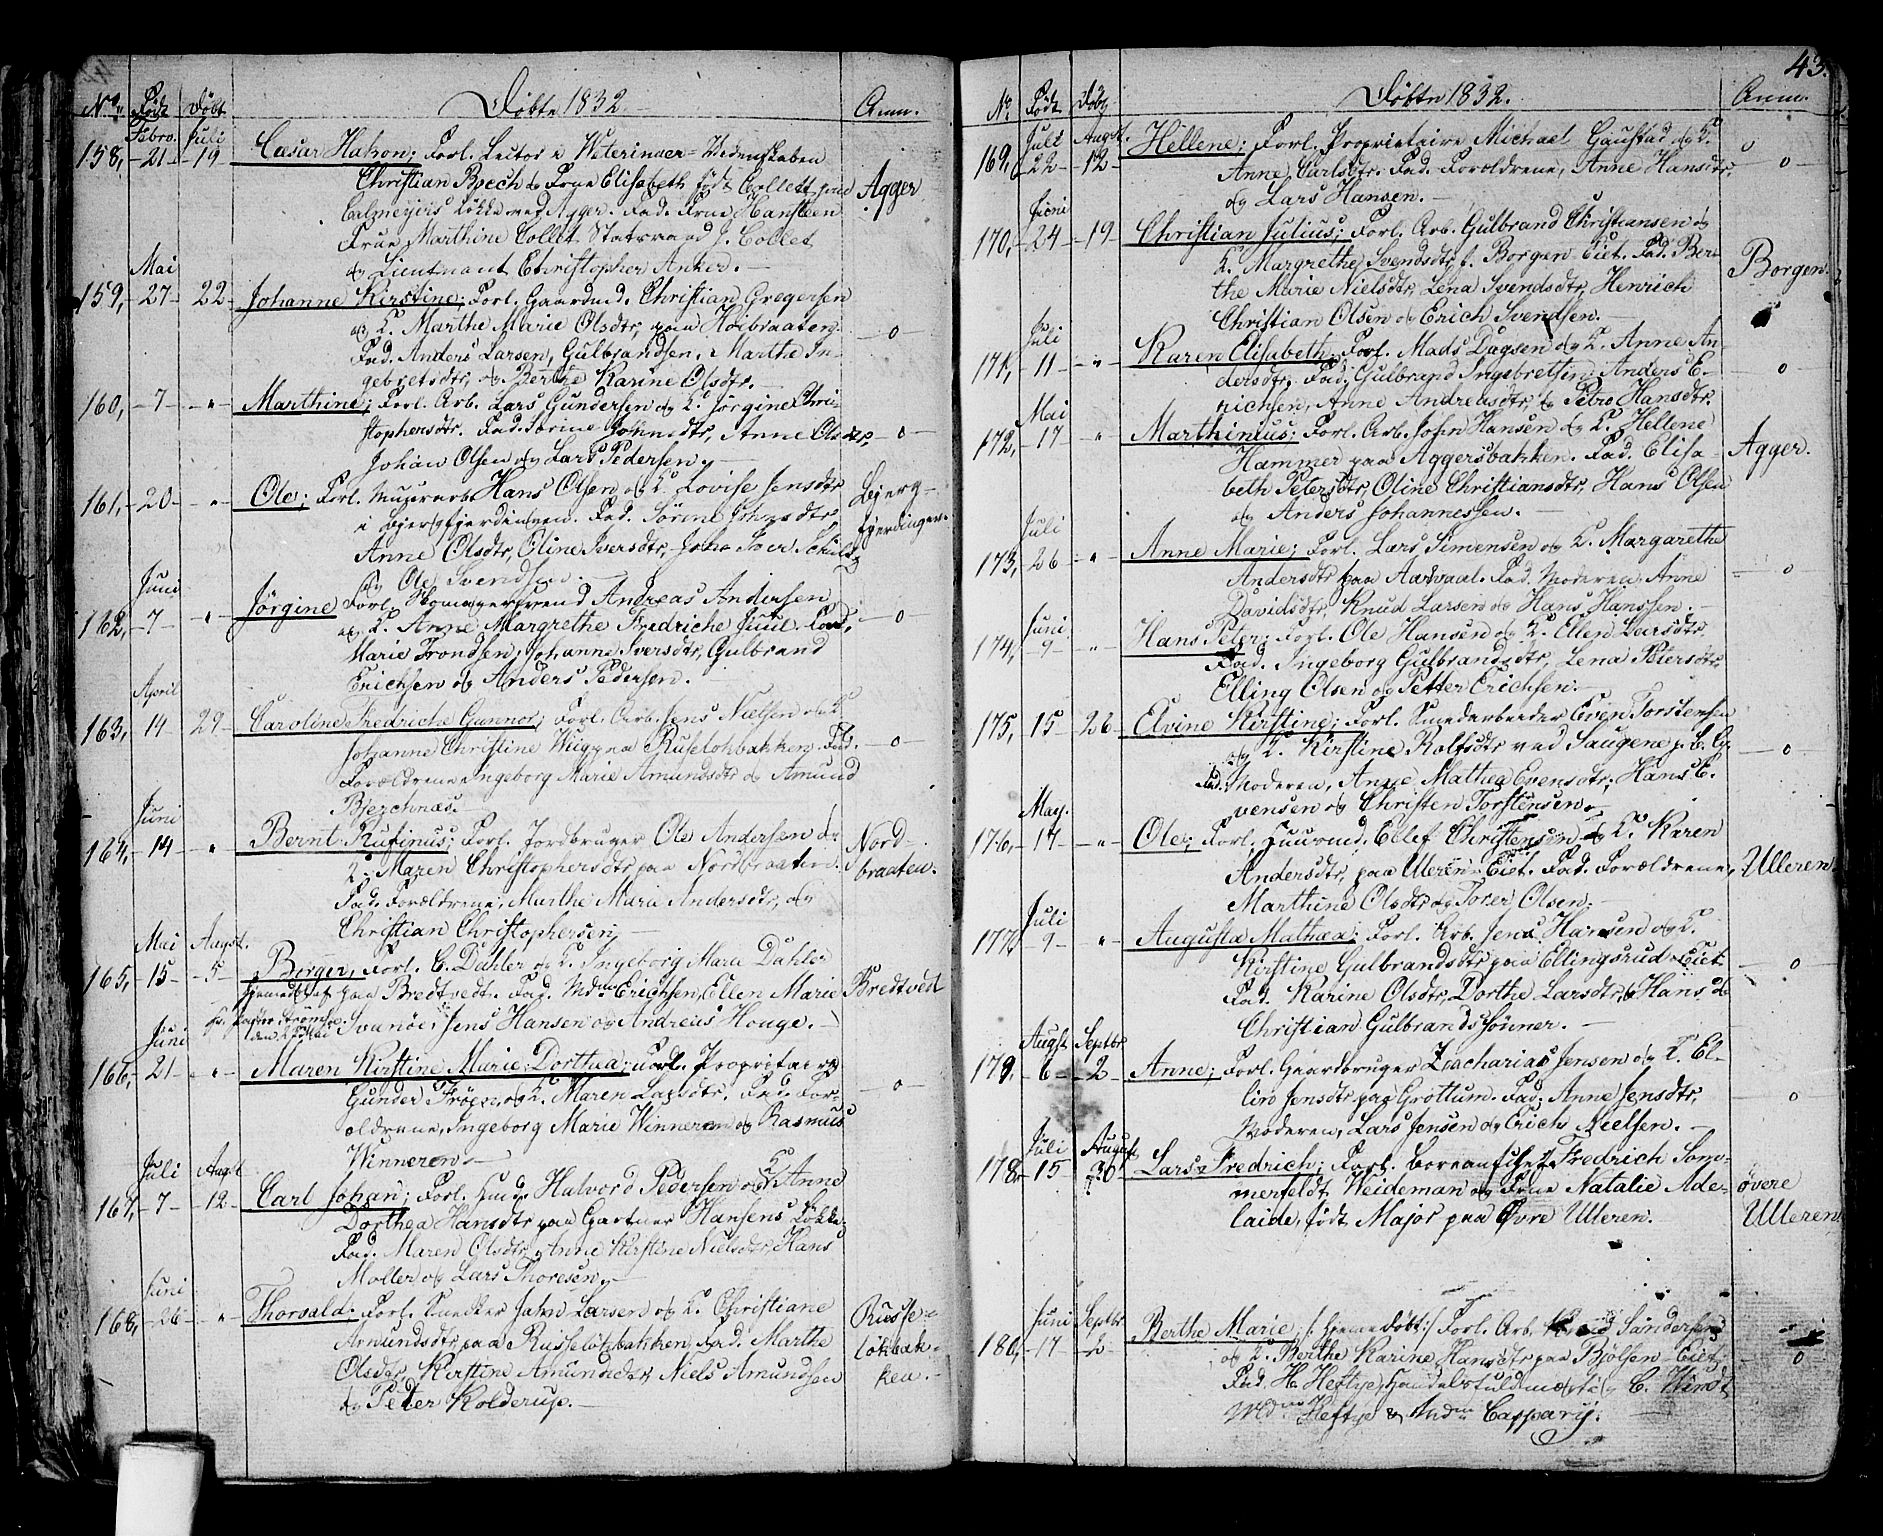 No. Født Døbt Døbte 1832 Anm.
Febro. Juli
158, 21 19 Cæsar Hakon; Forl. Lector i Veterinær-Videnskaben
Christian Boeck og Frue Elisabeth født Collett paa Agger
Calmeyers Løkke ved Agger. Fad. Frue Hansteen
Frue Marthine Collet Statsraad J. Collet
og Lieutnant Christopher Anker.
Mai
159, 27 22 Johanne Kirstine; Forl. Gaardmd. Christian Gregersen
og K. Marthe Marie Olsdtr, paa Høibraaten o
Fad. Anders Larsen, Gulbrandsen, Marthe In-
gebretsdtr, og Berthe Karine Olsdtr.
160, 7 " Marthine; Forl. Arb. Lars Gundersen og K. Jørgine Chri-
stophersdtr. Fad. Sørine Johnsdtr, Anne Olsdtr, o
Johan Olsen og Lars Pedersen.
161, 20 " Ole; Forl. Muurarb. Hans Olsen og K. Lovise Jensdtr Bjerg-
i Bjergfjerdingen. Fad. Sørine Johnsdtr fjerdingen.
Anne Olsdtr, Oline Iversdtr, John Iver Schultz
og Ole Svendsen.
Juni
162, 7 " Jørgine Forl. Skomagersvend Andreas Andersen
og K. Anne Margrethe Fredriche Juul. Fad. o
Marie Trondsen, Johanne Iversdtr, Gulbrand
Erichsen og Anders Pedersen.
April
163, 14 29 Caroline Fredriche Gunnor; Forl. Arb. Jens Nielsen og K
Johanne Christine Weig paa Ruseløhbakken. Fad. o
Forældrene Ingeborg Marie Amundsdtr og Amund
Bjerchnæs.
Juni
164, 14 " Bernt Rufinus; Forl. Jordbruger Ole Andersen og Nord-
K. Maren Christophersdtr paa Nordbraaten. braaten.
Fad. Forældrene, Marthe Marie Andersdtr, og
Christian Christophersen,
Mai Augst.
165, 15 5 Børger, Forl. C. Dahler og K. Ingeborg Marie Dahler
hjemedøbt paa Bredtvedt. Fad. Mdm Erichsen, Ellen Marie Bredtvedt
Svanøe, Jens Hansen og Andreas Houge.
Juni
166, 21 " Maren Kirstine Marie Dorthea; Forl. Proprietaire
Gunder Frøen, og K. Maren Larsdtr, Fad. For- o
ældrene, Ingeborg Marie Winneren og Rasmus
Winneren.
Juli Augst
167, 7 12 Carl Johan; Forl. Huusm. Halvord Pedersen og K. Anne
Dorthea Hansdtr paa Gartner Hansens Løkke.
Fad. Maren Olsdtr, Anne Kirstine Nielsdtr, Hans
Møller og Lars Thoresen.
Juni
168, 26 " Thorvald; Forl. Snedker Jahn Larsen og K. Christiane Russe-
Amundsdtr paa Russeløkbakken, Fad. Marthe løkbak-
Olsdtr, Kirstine Amundsdtr Niels Amundsen ken.
og Peter Kolderup.
43.
No. Født Døbt Døbte 1832. Anm.
Juli Augst.
169, 22 12 Hellene; Forl. Proprietaire Michael Gaustad og K.
Anne Carlsdtr. Fad. Forældrene, Anne Hansdtr, o
og Lars Hansen.
Juni
170, 24 19 Christian Julius; Forl. Arb. Gulbrand Christiansen og
K. Margrethe Svendsdtr, f. Borgen Eiet. Fad. Ber- Borgen.
the Marie Nielsdtr, Lena Svendsdtr, Henrich
Christian Olsen og Erich Svendsen.
Juli
171, 11 " Karen Elisabeth; Forl. Mads Dagsen og K. Anne An-
dersdtr, Fad. Gulbrand Ingebretsen, Anders E- o
richsen, Anne Andreasdtr, og Petro Hansdtr.
Mai
172, 17 " Marthinius; Forl. Arb. John Hansen og K. Hellene
Hammer paa Aggersbakken. Fad. Elisa- Agger.
beth Petersdtr, Oline Christiansdtr, Hans Olsen
og Anders Johannessen.
Juli
173, 26 " Anne Marie; Forl. Lars Simensen og K. Margarethe
Andersdtr paa Aarvaal. Fad. Moderen, Anne o
Davidsdtr, Knud Larsen og Hans Hanssen.
Juni
174, 9 " Hans Peter; Forl. Ole Hansen og K. Ellen Larsdtr
Fad. Ingeborg Gulbrandsdtr, Lena Petersdtr
Elling Olsen og Petter Erichsen.
175, 15 26 Elvine Kirstine; Forl. Smedarbeider Even Torstensen
og K. Kirstine Rolfsdtr ved Saugene p. B. G. o
Fad. Moderen, Anne Mathea Evensdtr, Hans E-
vensen og Christen Torstensen.
May.
176, 17 " Ole; Forl. Huusmd. Ellef Christensen og K. Karen
Andersdtr, paa Ulleren-Eiet. Fad. Forældrene, Ulleren.
Marthine Olsdtr og Torer Olsen.
Juli
177, 9 " Augusta Mathea; Forl. Arb. Jens Hansen og K.
Kirstine Gulbrandsdtr paa Ellingsrud-Eiet o
Fad. Karine Olsdtr, Dorthe Larsdtr, Hans og
Christian Gulbrandssønner.
Augst Septbr
179, 6 2 Anne; Forl. Gaardbruger Zacharias Jensen og K. El-
len Jensdtr paa Grøttum. Fad. Anne Jensdtr, o
Moderen, Lars Jensen og Erich Nielsen.
Juli August
178, 15 30 Lars Fredrich; Forl. Boreauchef Fredrich Som-
merfeldt Weideman og Frue Natalie Ade- øvere
laide, født Major paa Øvre Ulleren. Ulleren
Juni Septbr
180, 17 2 Berthe Marie; /: hjemedøbt:/ Forl. Arb. Sandersen
og K. Berthe Karine Hansdtr paa Bjølsen-Eiet o
Fad. H. Heftye, Handelsfuldmægtig C. Windt
Mdme Heftye & Mdm Casparij.